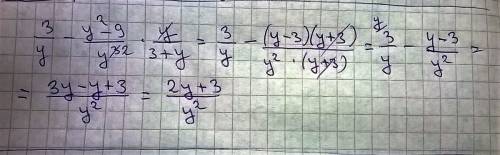 3/y - (y² - 9)/y³² · y/(3+y) = 3/y - ((y-3)(y+3))/(y² · (y+3)) = ʸ3/y - (y-3)/y² =
= (3y-y+3)/y² = (2y+3)/y²